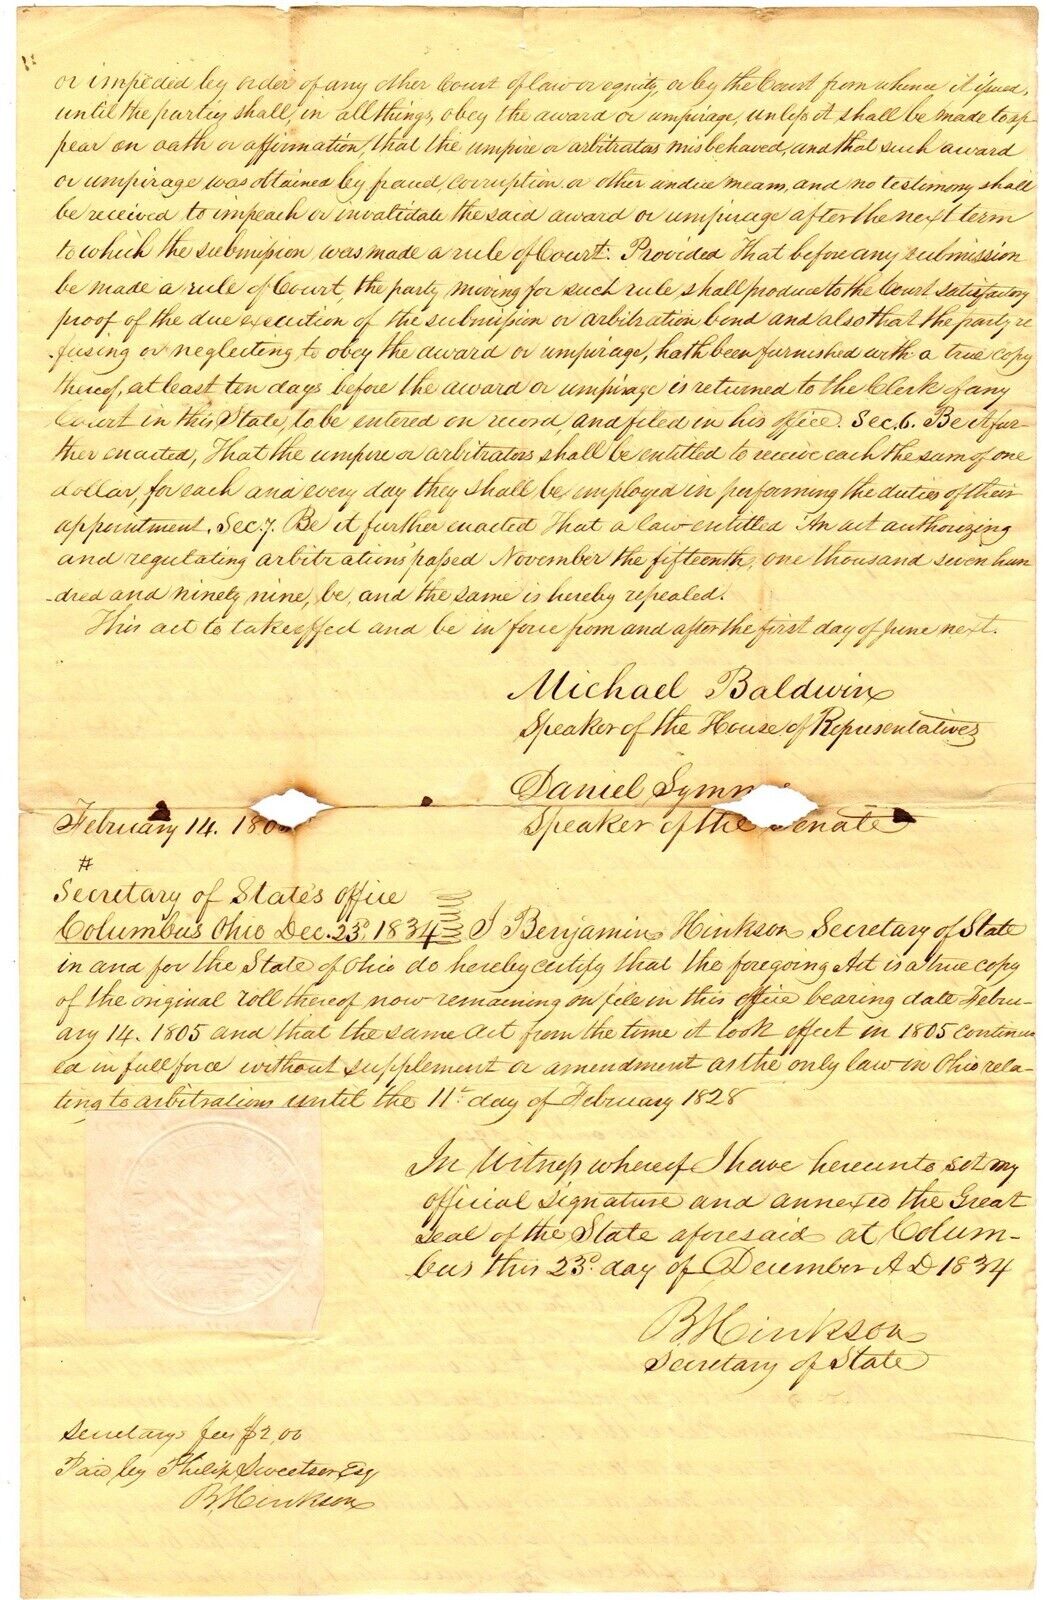 or impeded by order of any other Court of law or equity, or by the Court from whence it issued,
until the parties shall, in all things, obey the award or umpirage, unless it shall be made to ap-
pear on oath or affirmation, that the umpire or arbitrators misbehaved, and that such award
or umpirage was obtained by fraud, corruption or other undue means, and no testimony shall
be received to impeach or invalidate the said award or umpirage after the next term
to which the submission was made a rule of Court. Provided That before any submission
be made a rule of Court, the party moving for such rule, shall produce to the Court satisfactory
proof of the due execution of the submission or arbitration bond and also that the party re
-fusing or neglecting to obey the award or umpirage, hath been furnished with a true copy
thereof, at least ten days before the award or umpirage is returned to the Clerk of any
Court in this State, to be entered on record, and filed in his office. Sec. 6. Be it fur-
ther enacted, That the umpire or arbitrators shall be entitled to receive each the sum of one
dollar, for each and every day they shall be employed in performing the duties of their
appointment. Sec. 7. Be it further enacted That a law entitled "An act authorizing
and regulating arbitrations" passed November the fifteenth, one thousand seven hun
-dred and ninety nine, be, and the same is hereby repealed.
This act to take effect and be in force from and after the first day of June next.
Michael Baldwin
Speaker of the House of Representatives
Daniel Symm
February 14. 1805
Speaker of the Senate
#
Secretary of State's office
Columbus Ohio Dec. 23d, 1834 I Benjamin Hinkson Secretary of State
in and for the State of Ohio do hereby certify that the foregoing Act is a true copy
of the original roll thereof now remaining on file in this office bearing date Febru-
ary 14. 1805 and that the same act from the time it took effect in 1805 continu
ed in full force without supplement or amendment as the only law in Ohio rela-
ting to arbitrations until the 11th day of February 1828
In Witness whereof I have hereunto set my
official signature and annexed the Great
seal of the State aforesaid at Colum-
bus this 23d. day of December A D 1834
B. Hinkson
Secretary of State
Secretarys fees $2,00
Paid by Philip Sweetser Esq
B. Hinkson